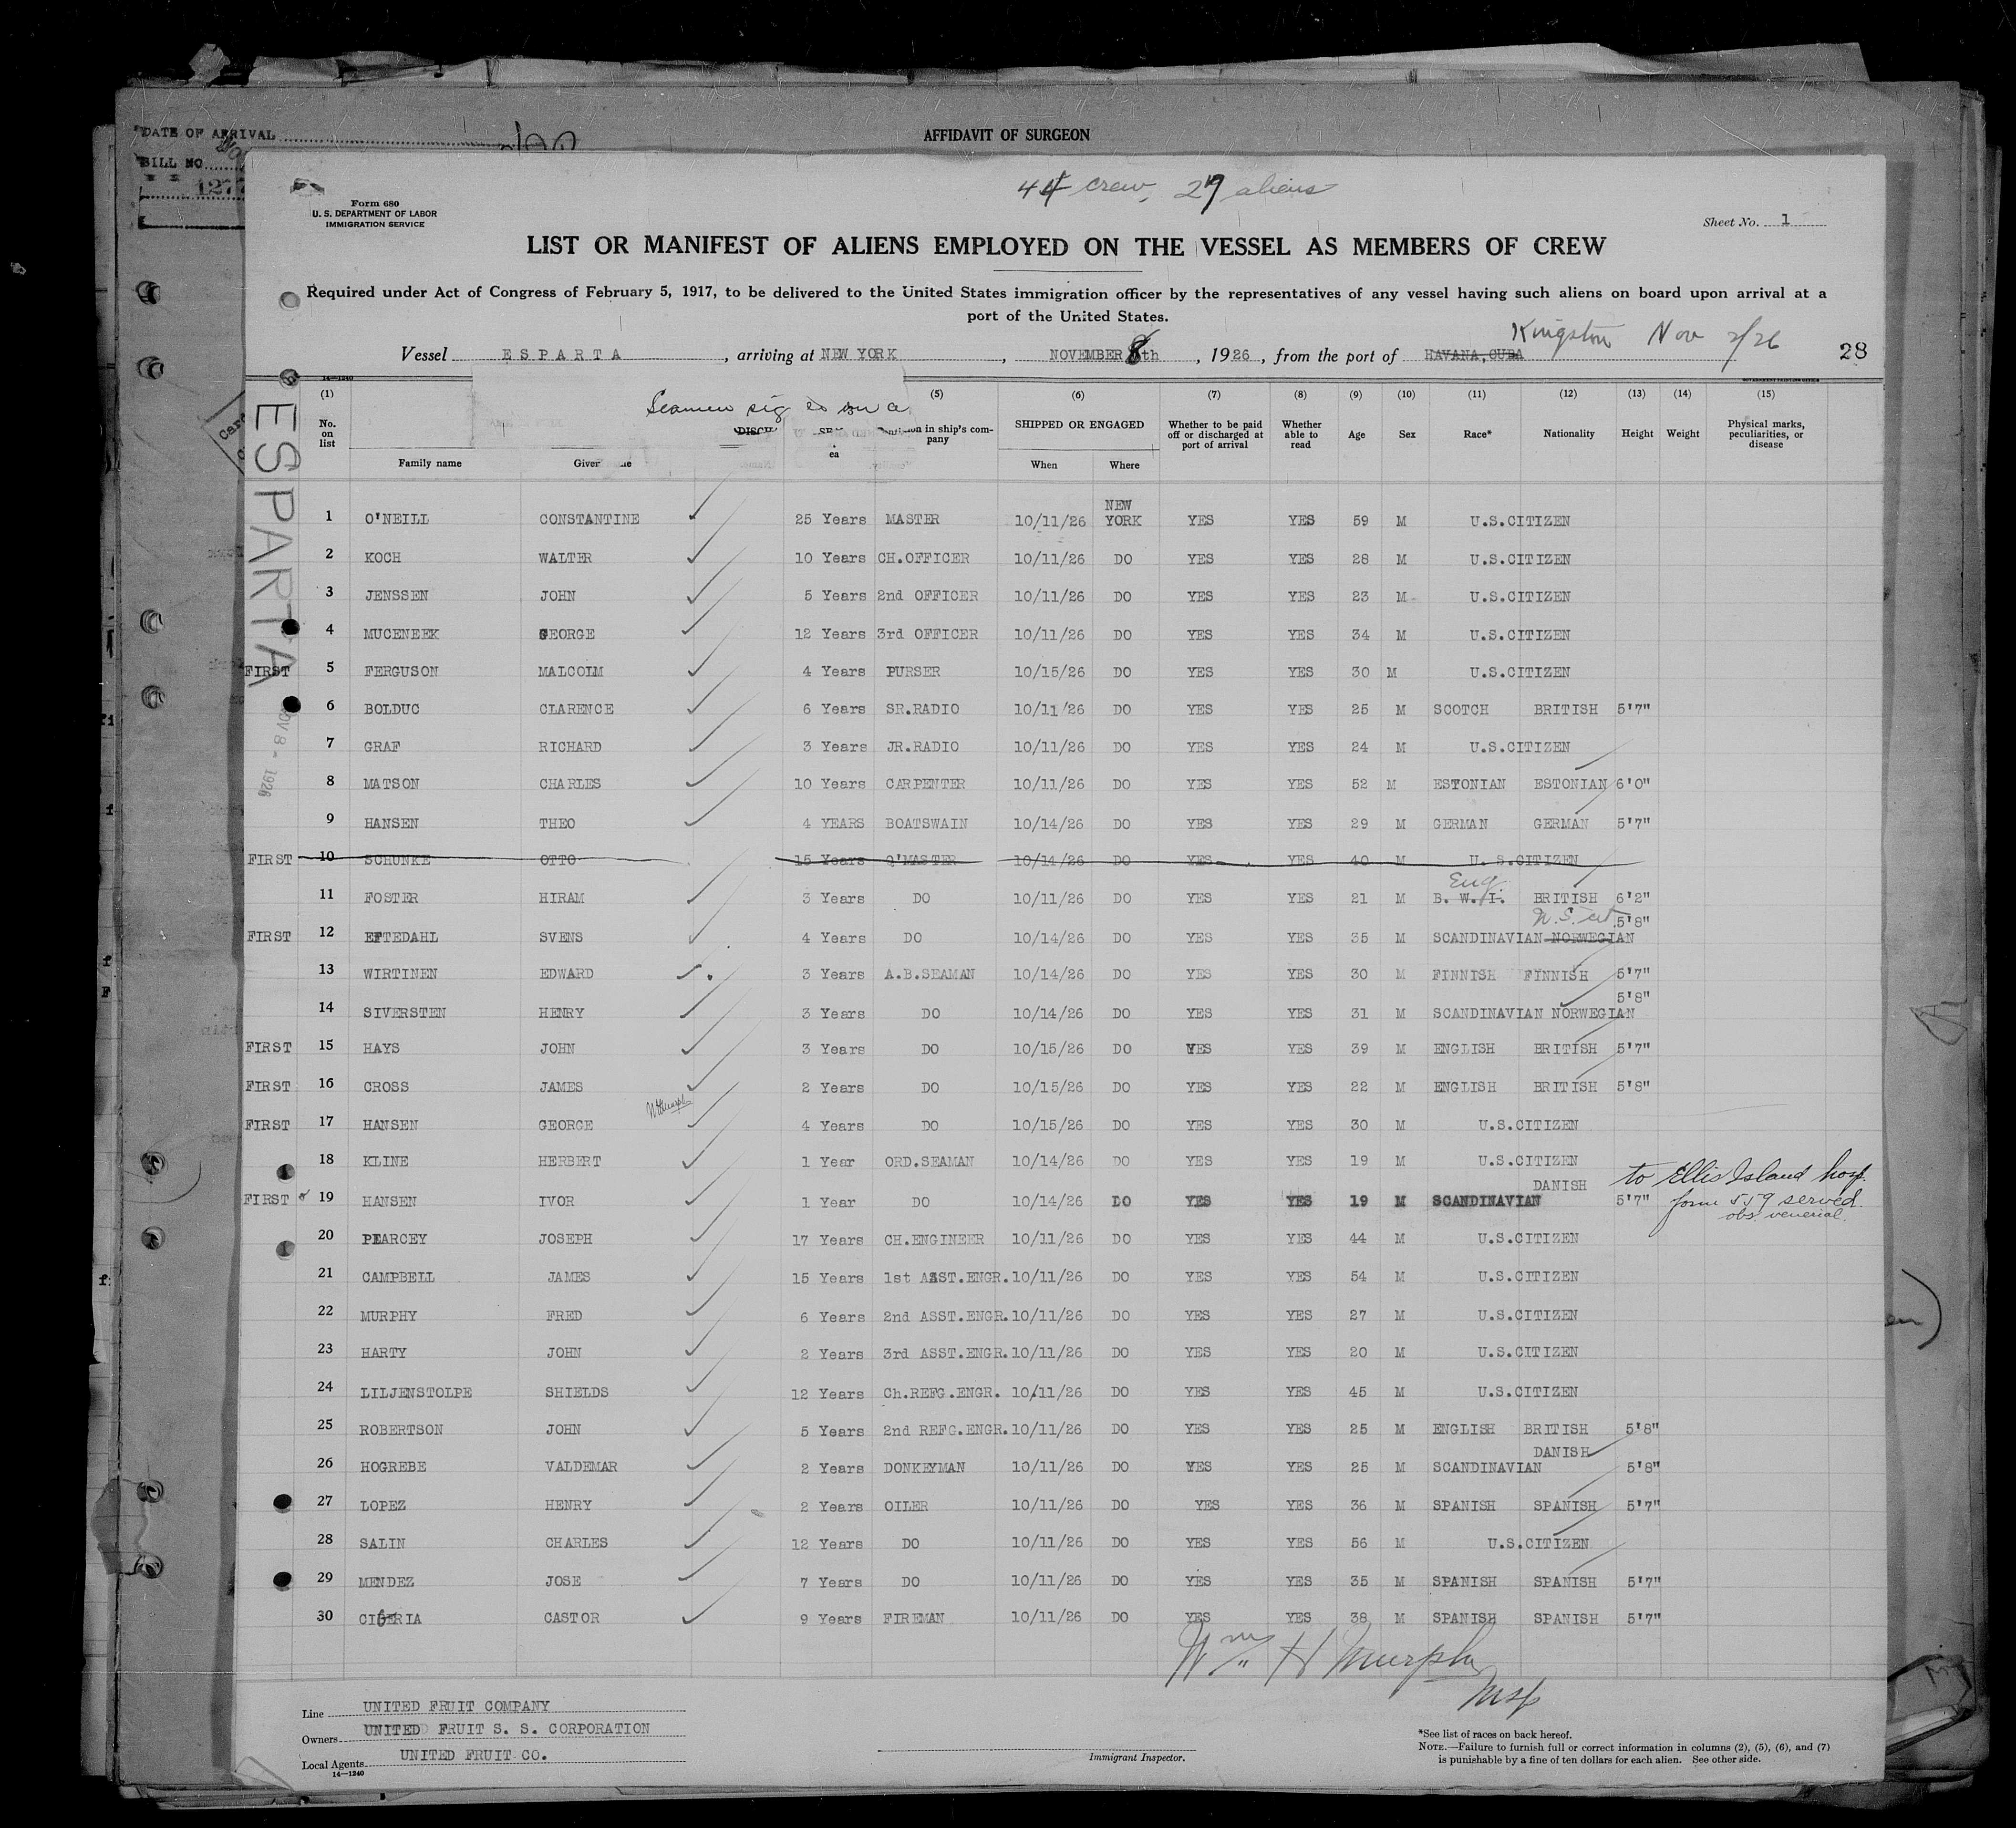 DATE OF ARRIVAL
AFFIDAVIT OF SURGEON
BILL NO
1277
44 crew, 27 aliens
Form 680
U. S. DEPARTMENT OF LABOR
IMMIGRATION SERVICE
Sheet No. 1
LIST OR MANIFEST OF ALIENS EMPLOYED ON THE VESSEL AS MEMBERS OF CREW
Required under Act of Congress of February 5, 1917, to be delivered to the United States immigration officer by the representatives of any vessel having such aliens on board upon arrival at a
port of the United States.
Kingston Nov 2/26
Vessel ESPARTA, arriving at NEW YORK, NOVEMBER 8th, 1926, from the port of HAVANA, CUBA
28
14-1240
ESPARTA
NOV 8 - 1926
(1) (5) (6) (7) (8) (9) (10) (11) (12) (13) (14) (15)
Seamen
No. on list Family name Given SHIPPED OR ENGAGED When Where Whether to be paid off or discharged at port of arrival Whether able to read Age Sex Race* Nationality Height Weight Physical marks, peculiarities, or disease
1 O'NEILL CONSTANTINE 25 Years MASTER 10/11/26 NEW YORK YES YES 59 M U.S.CITIZEN
2 KOCH WALTER 10 Years CH.OFFICER 10/11/26 DO YES YES 28 M U.S.CITIZEN
3 JENSSEN JOHN 5 Years 2nd OFFICER 10/11/26 DO YES YES 23 M U.S.CITIZEN
4 MUCENEEK GEORGE 12 Years 3rd OFFICER 10/11/26 DO YES YES 34 M U.S.CITIZEN
FIRST 5 FERGUSON MALCOLM 4 Years PURSER 10/15/26 DO YES YES 30 M U.S.CITIZEN
6 BOLDUC CLARENCE 6 Years SR.RADIO 10/11/26 DO YES YES 25 M SCOTCH BRITISH 5'7"
7 GRAF RICHARD 3 Years JR.RADIO 10/11/26 DO YES YES 24 M U.S.CITIZEN
8 MATSON CHARLES 10 Years CARPENTER 10/11/26 DO YES YES 52 M ESTONIAN ESTONIAN 6'0"
9 HANSEN THEO 4 YEARS BOATSWAIN 10/14/26 DO YES YES 29 M GERMAN GERMAN 5'7"
FIRST 10 SCHUNKE OTTO 15 Years Q'MASTER 10/14/26 DO YES YES 40 M U. S.CITIZEN
Eng.
11 FOSTER HIRAM 3 Years DO 10/11/26 DO YES YES 21 M B. W. I. BRITISH 6'2"
5'8"
FIRST 12 EFTEDAHL SVENS 4 Years DO 10/14/26 DO YES YES 35 M SCANDINAVIAN NORWEGIAN
13 WIRTINEN EDWARD 3 Years A.B.SEAMAN 10/14/26 DO YES YES 30 M FINNISH FINNISH 5'7"
5'8"
14 SIVERSTEN HENRY 3 Years DO 10/14/26 DO YES YES 31 M SCANDINAVIAN NORWEGIAN
FIRST 15 HAYS JOHN 3 Years DO 10/15/26 DO YES YES 39 M ENGLISH BRITISH 5'7"
FIRST 16 CROSS JAMES 2 Years DO 10/15/26 DO YES YES 22 M ENGLISH BRITISH 5'8"
FIRST 17 HANSEN GEORGE 4 Years DO 10/15/26 DO YES YES 30 M U.S.CITIZEN
18 KLINE HERBERT 1 Year ORD.SEAMAN 10/14/26 DO YES YES 19 M U.S.CITIZEN
DANISH to Ellis Island hosp.
FIRST 19 HANSEN IVOR 1 Year DO 10/14/26 DO YES YES 19 M SCANDINAVIAN 5'7" form 559 served.
obs. venerial.
20 PEARCEY JOSEPH 17 Years CH.ENGINEER 10/11/26 DO YES YES 44 M U.S.CITIZEN
21 CAMPBELL JAMES 15 Years 1st ASST.ENGR. 10/11/26 DO YES YES 54 M U.S.CITIZEN
22 MURPHY FRED 6 Years 2nd ASST.ENGR. 10/11/26 DO YES YES 27 M U.S.CITIZEN
23 HARTY JOHN 2 Years 3rd ASST.ENGR. 10/11/26 DO YES YES 20 M U.S.CITIZEN
24 LILJENSTOLPE SHIELDS 12 Years Ch.REFG.ENGR. 10/11/26 DO YES YES 45 M U.S.CITIZEN
25 ROBERTSON JOHN 5 Years 2nd REFG.ENGR. 10/11/26 DO YES YES 25 M ENGLISH BRITISH 5'8"
DANISH
26 HOGREBE VALDEMAR 2 Years DONKEYMAN 10/11/26 DO YES YES 25 M SCANDINAVIAN 5'8"
27 LOPEZ HENRY 2 Years OILER 10/11/26 DO YES YES 36 M SPANISH SPANISH 5'7"
28 SALIN CHARLES 12 Years DO 10/11/26 DO YES YES 56 M U.S.CITIZEN
29 MENDEZ JOSE 7 Years DO 10/11/26 DO YES YES 35 M SPANISH SPANISH 5'7"
30 CASTOR 9 Years FIREMAN 10/11/26 DO YES YES 38 M SPANISH SPANISH 5'7"
Wm H Murphy
Line UNITED FRUIT COMPANY
Owners UNITED FRUIT S. S. CORPORATION
Local Agents UNITED FRUIT CO.
14-1240
Immigrant Inspector.
*See list of races on back hereof.
NOTE.—Failure to furnish full or correct information in columns (2), (5), (6), and (7)
is punishable by a fine of ten dollars for each alien. See other side.